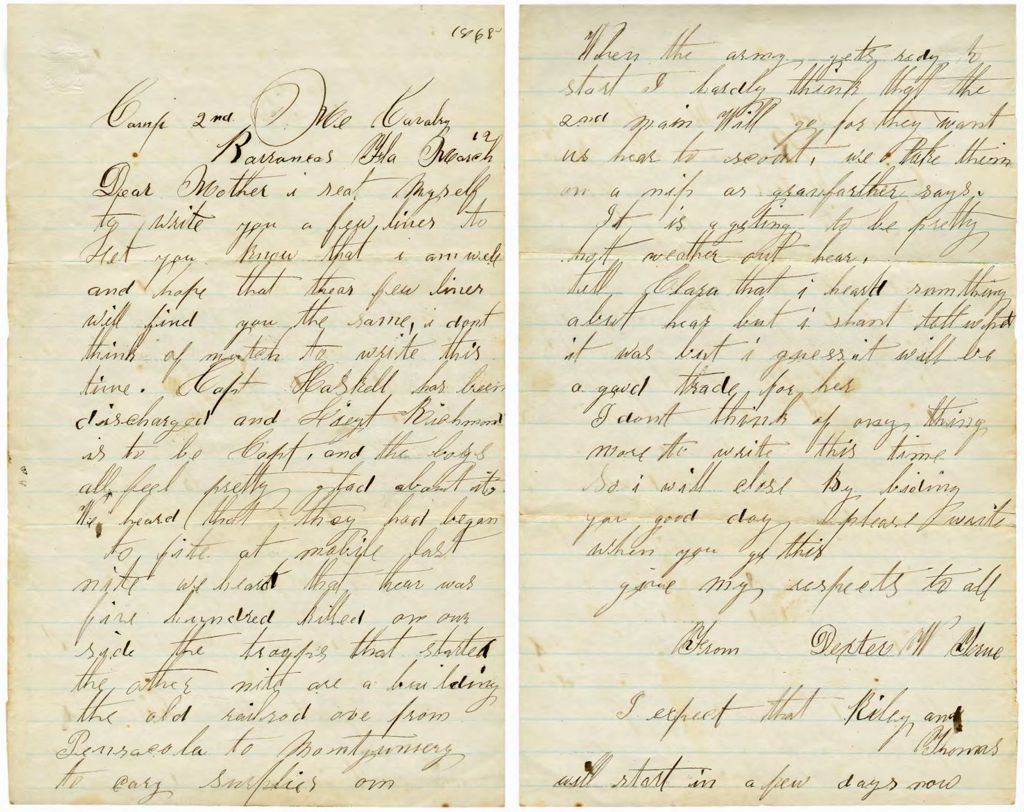 1865
Camp 2nd Me Cavalry
Barrancas Fla March 19
Dear Mother i seat myself
to write you a few lines to
let you know that i am well
and hope that thear few lines
will find you the same, i dont
think of mutch to write this
time. Capt Haskell has been
discharged and Lieut Richmond
is to be Capt, and the boys
all feel pretty glad about it
We heard that they had began
to fite at mobile last
nite we heard that hear was
five hundred killed on our
side the troops that started
the other nite are a building
the old railrod ove from
Pensacola to Montgumery
to cary surplies on
When the army gets redy to
start I hardly think that the
2nd main Will go for they want
us hear to scout, we take them
on a nip as granfarther says.
It is a geting to be pretty
hot weather out hear,
tell Clara that i heard somthing
about hear but i shant tell what
it was but i guess it will be
a good trade for her
I dont think of any thing
more to write this time
So i will close By biding
you good day please write
when you get this
give my respects to all
From Dexter W
I expect that Riley and
Thomas
will start in a few days now